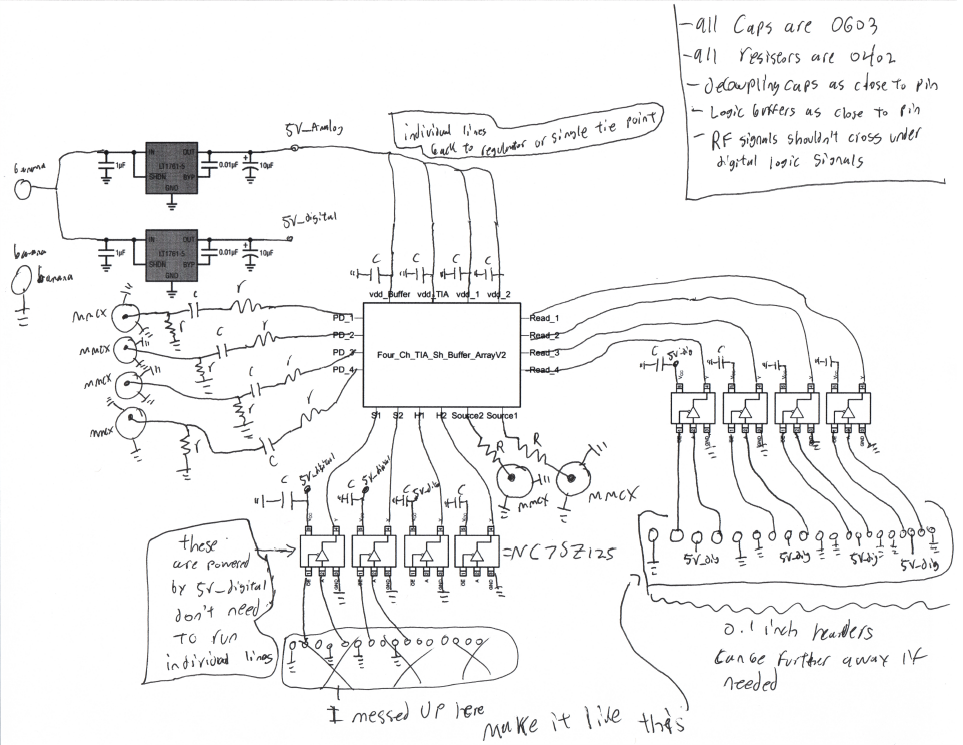 -all Caps are 0603
-all resistors are 0402
- decoupling caps as close to pin
- Logic buffers as close to pin
- RF signals shouldn't cross under
digital logic signals
5V_Analog
individual lines
back to regulator or single tie point
banana
1µF
IN OUT
LT1761-5
SHDN BYP
GND
0.01µF
+
10µF
5V_digital
banana
banana
1µF
IN OUT
LT1761-5
SHDN BYP
GND
0.01µF
+
10µF
C C C C
vdd_Buffer vdd_TIA vdd_1 vdd_2
MMCX
C
r
r
MMCX
C
r
r
MMCX
C
r
r
MMCX
C
r
r
PD_1
PD_2
PD_3
PD_4
Four_Ch_TIA_Sh_Buffer_ArrayV2
Read_1
Read_2
Read_3
Read_4
S1 S2 H1 H2 Source2 Source1
R R
MMCX MMCX
C 5V_dig C C C
VCC Y VCC Y VCC Y VCC Y
OE A GND OE A GND OE A GND OE A GND
5V_dig 5V_dig 5V_dig 5V_dig
C 5V_digital C 5V_digital C 5V_dig C
VCC Y VCC Y VCC Y VCC Y
OE A GND OE A GND OE A GND OE A GND
=NC7SZ125
these
are powered
by 5V_digital
don't need
to run
individual lines
I messed up here
make it like this
0.1 inch headers
can be further away if
needed